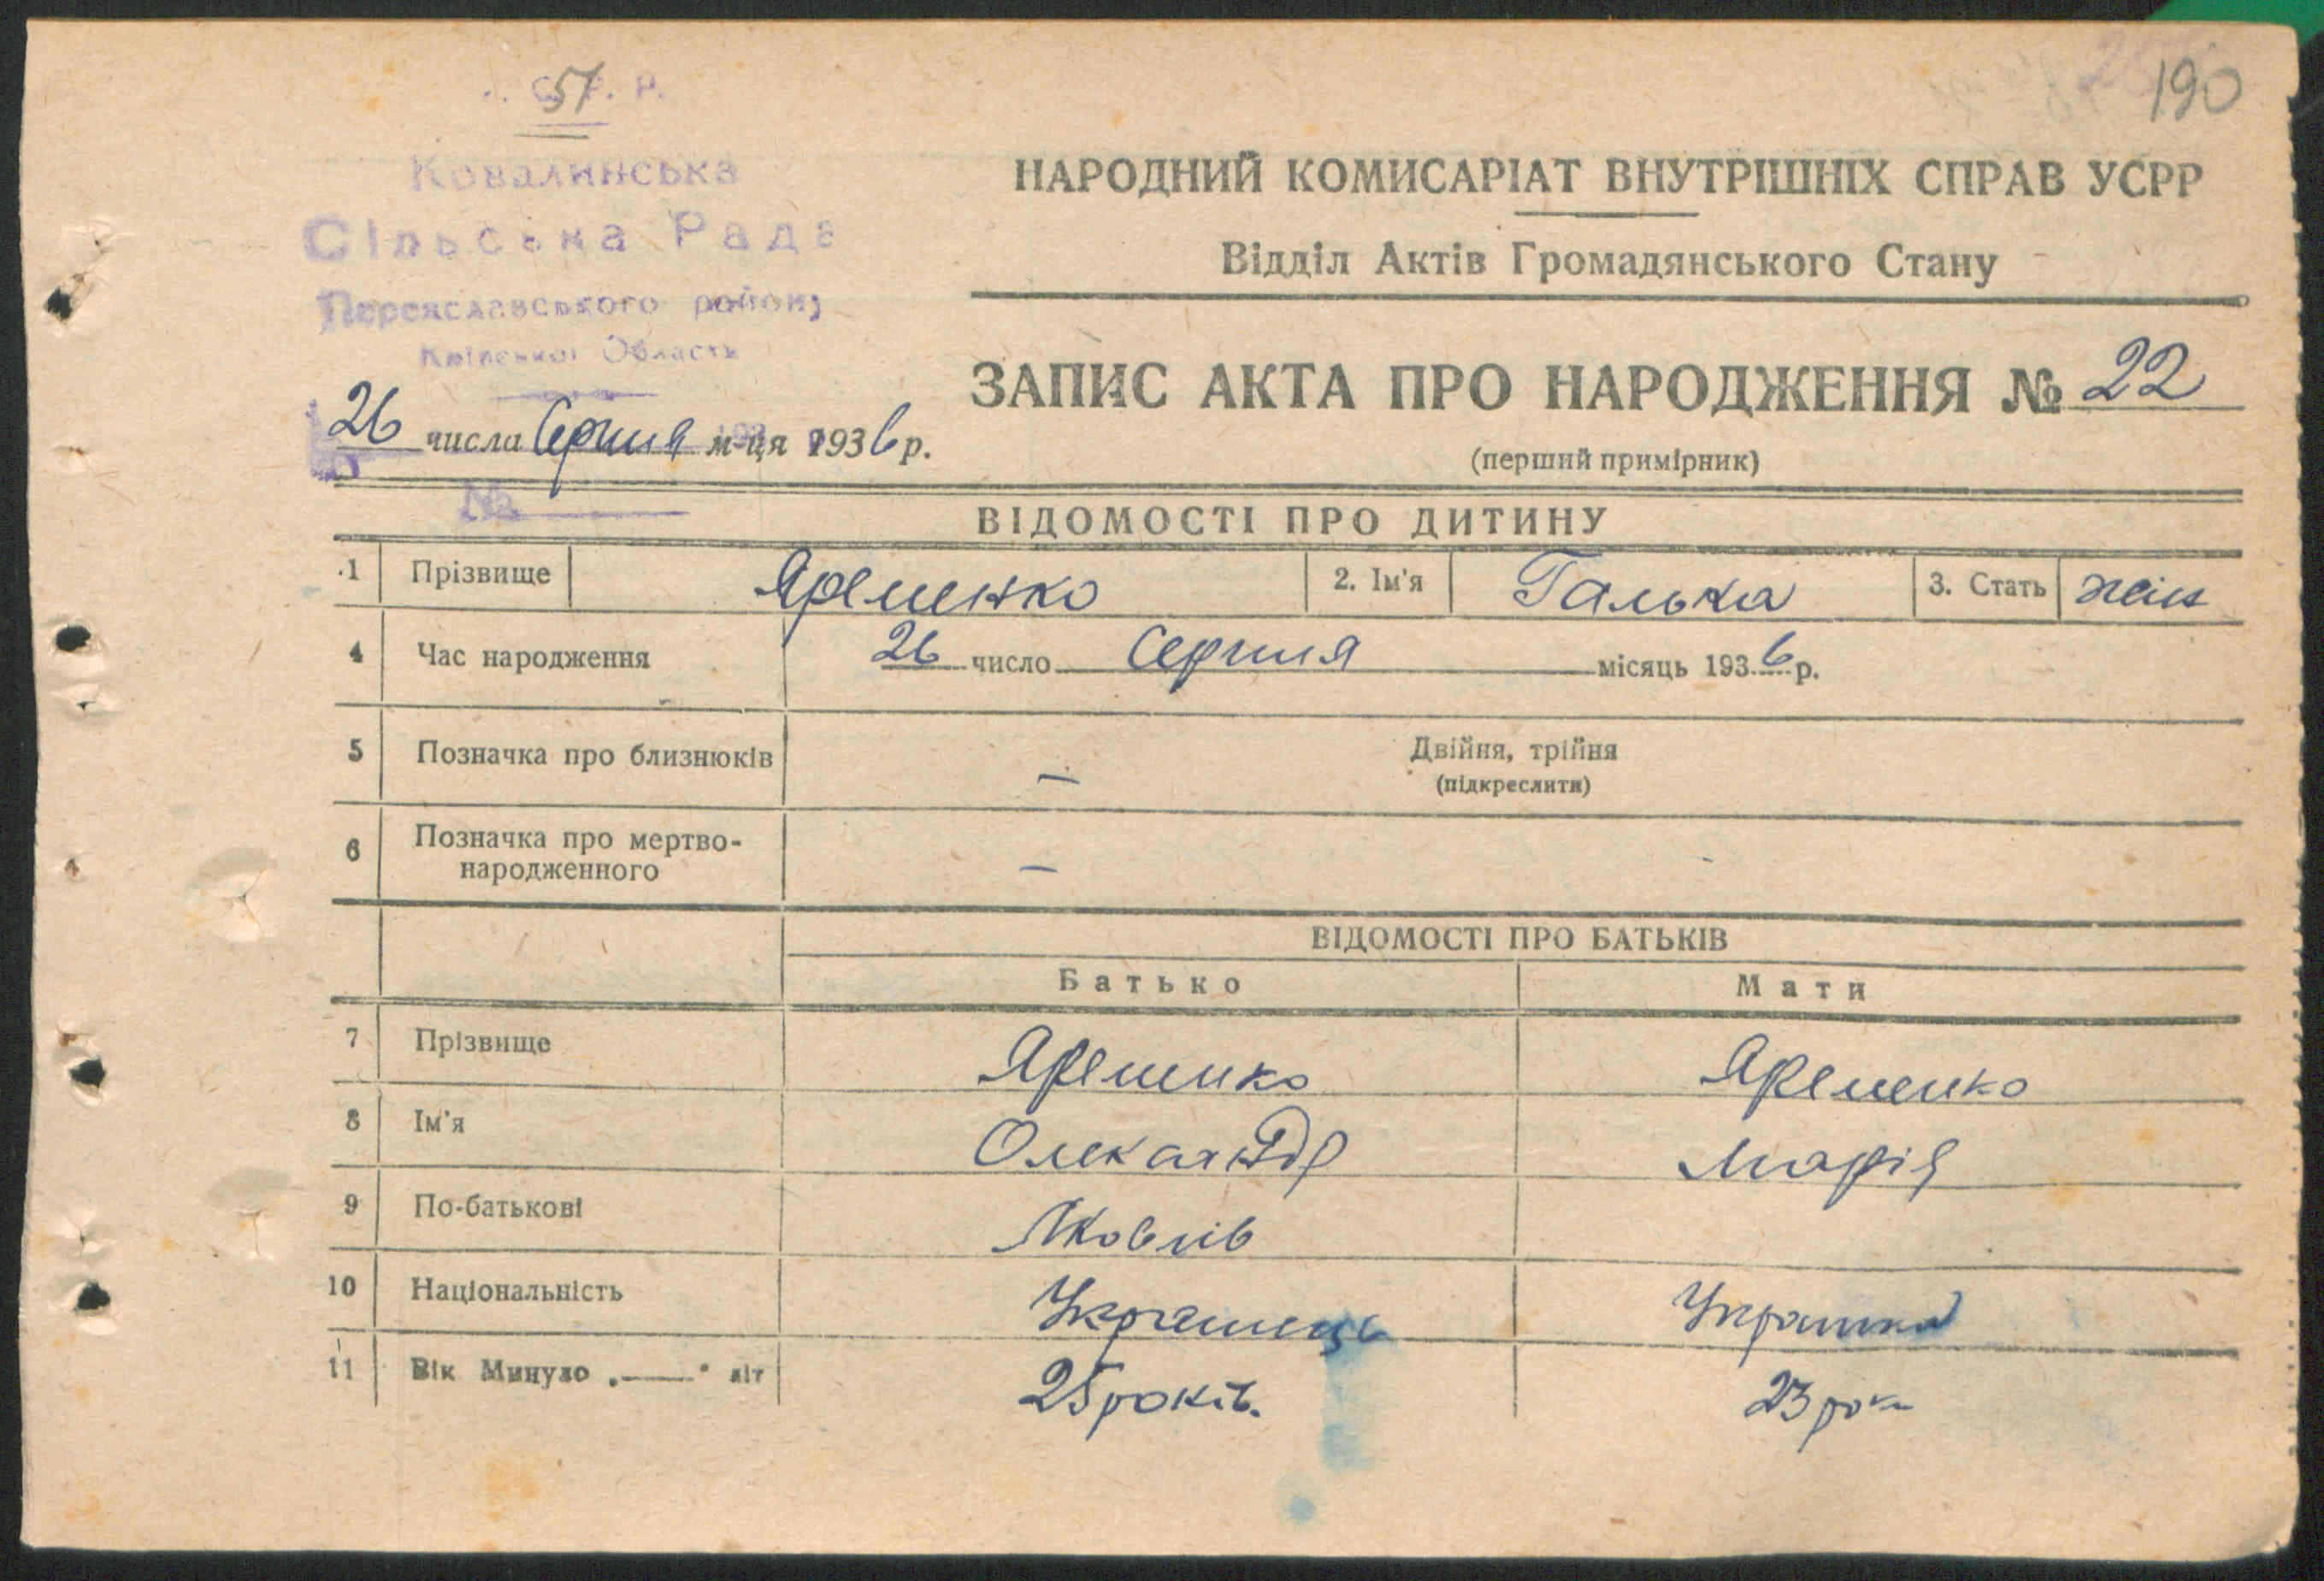 190
51
Ковалинська
Сільська Рада
Переяславського району
Київської Області
НАРОДНИЙ КОМИСАРІАТ ВНУТРІШНІХ СПРАВ УСРР
Відділ Актів Громадянського Стану
ЗАПИС АКТА ПРО НАРОДЖЕННЯ № 22
(перший примірник)
26 числа Серпня м-ця 1936 р.
№
ВІДОМОСТІ ПРО ДИТИНУ
1 Прізвище Яременко 2. Ім'я Галька 3. Стать жін
4 Час народження 26 число Серпня місяць 1936 р.
5 Позначка про близнюків — Двійня, трійня
(підкреслити)
6 Позначка про мертво-
народженного —
ВІДОМОСТІ ПРО БАТЬКІВ
Батько Мати
7 Прізвище Яременко Яременко
8 Ім'я Олександр Марія
9 По-батькові Яковлів
10 Національність Украинець Украинка
11 Вік Минуло „—" літ 25 років. 23 роки